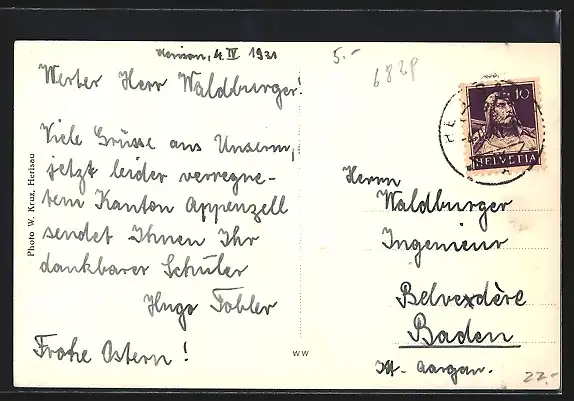 Herisau, 4. IV 1931
5.-
682P
Werter Herr Waldburger!
Viele Grüsse aus Unserm,
jetzt leider verregne-
tem Kanton Appenzell
sendet Ihnen Ihr
dankbarer Schüler
Hugo Tobler
Frohe Ostern!
Photo W. Kruz, Herisau
WW
10
HELVETIA
Herrn
Waldburger
Ingenieur
Belvedère
Baden
Kt. Aargau.
22.-